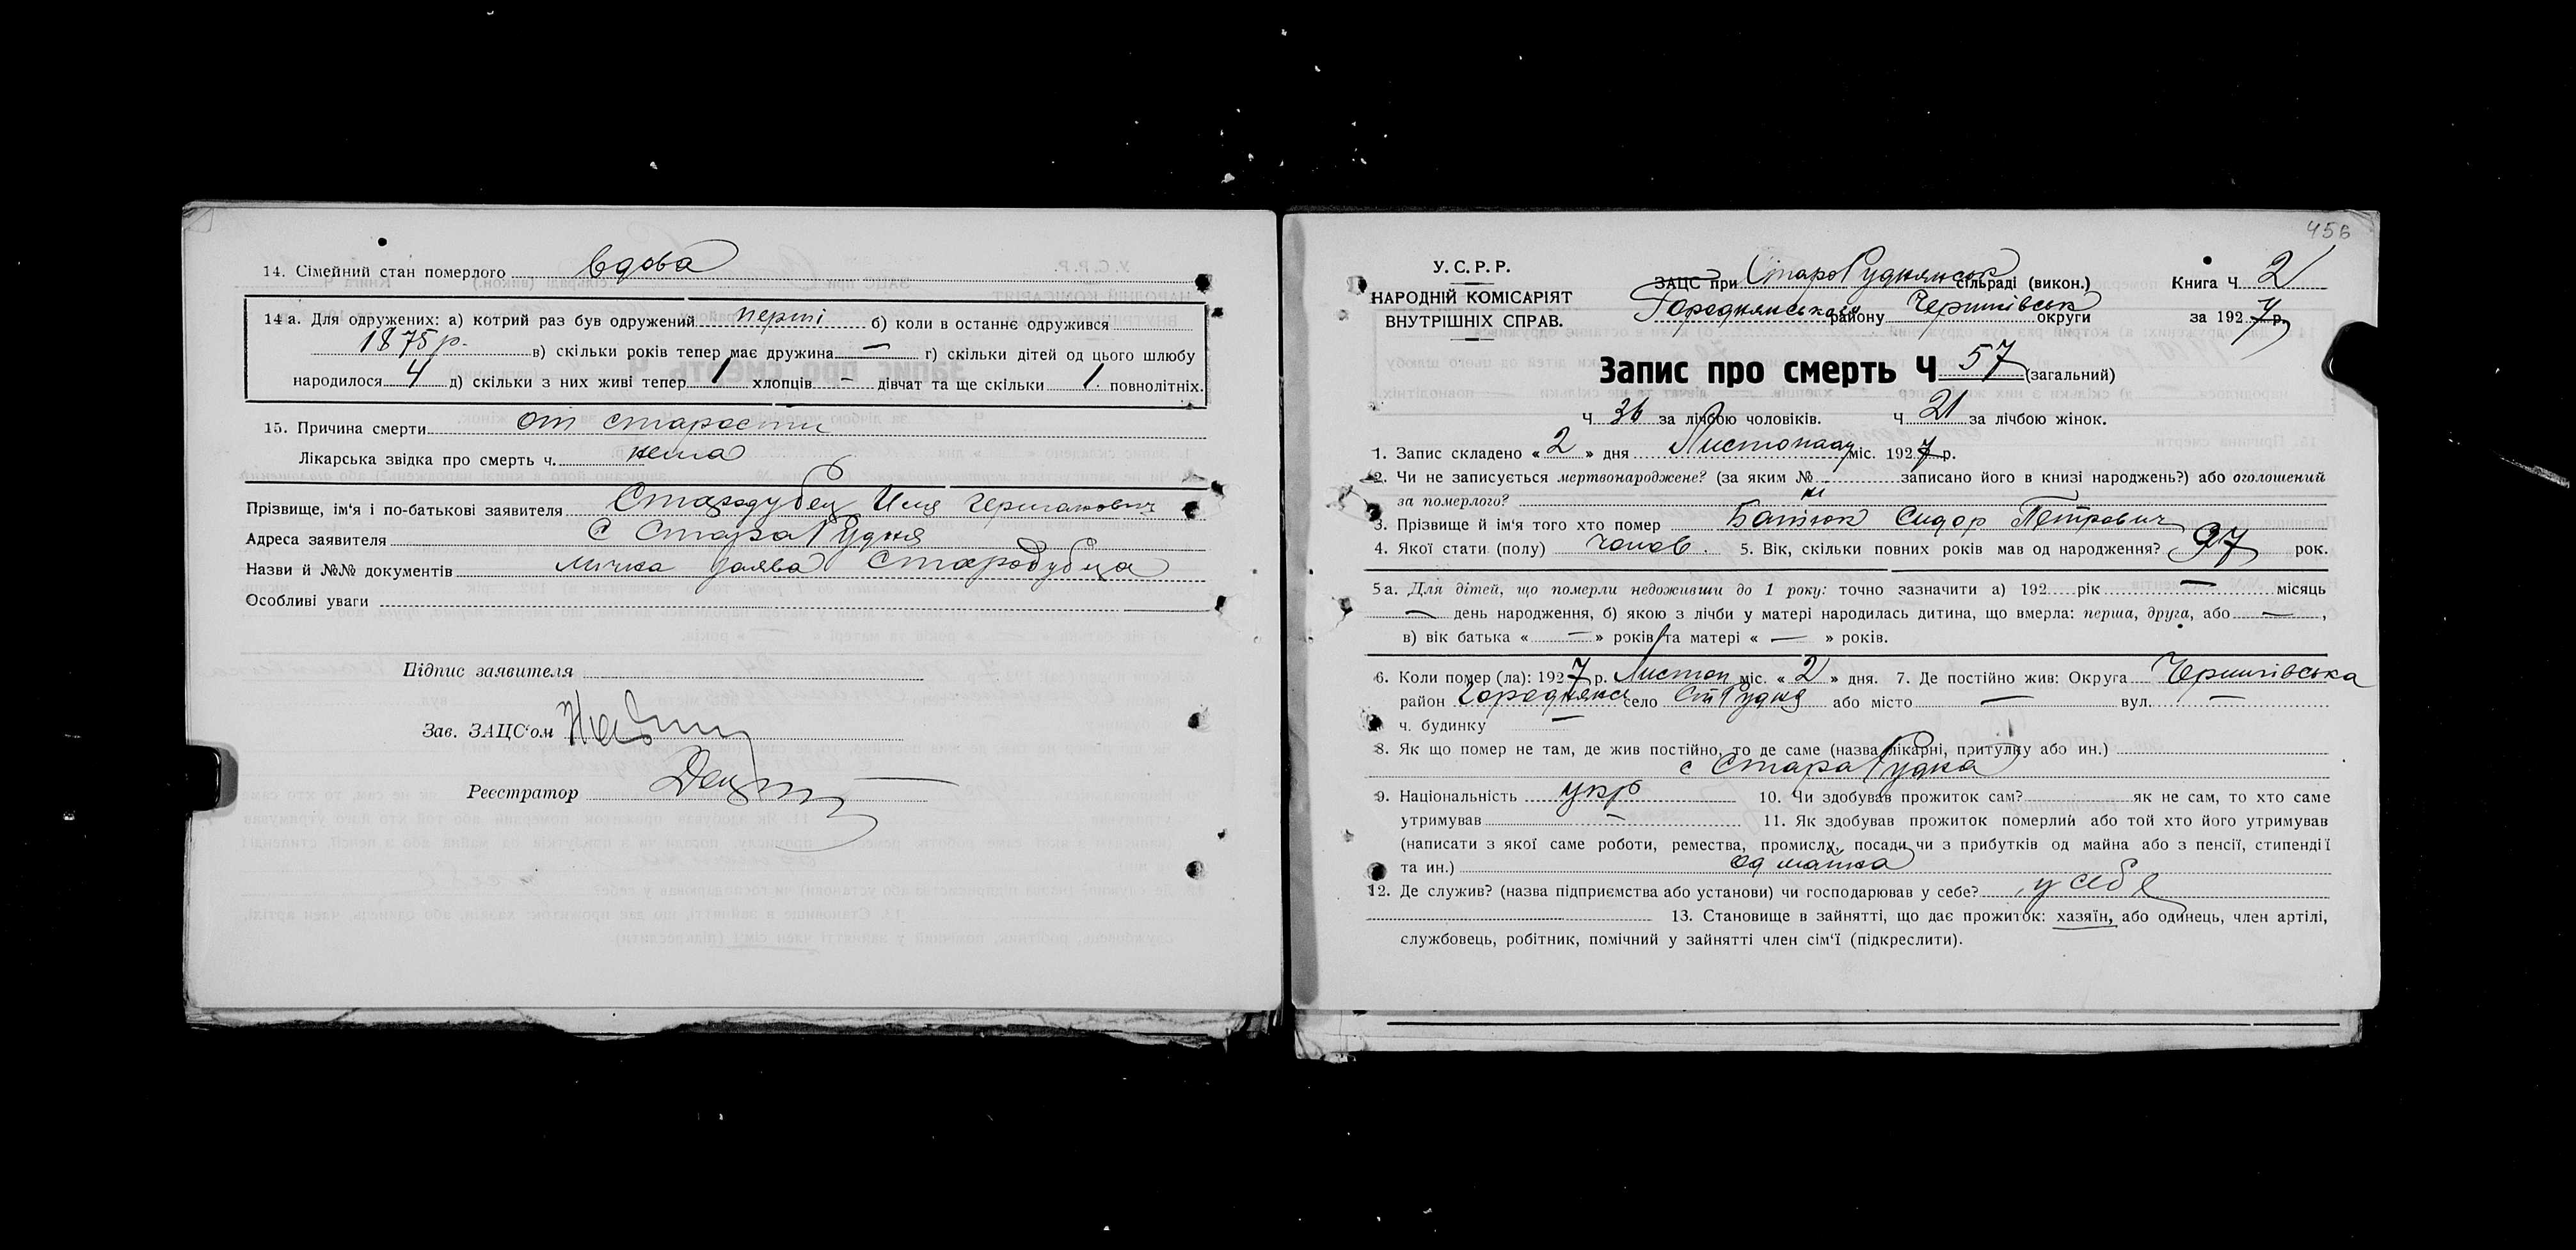 14. Сімейний стан померлого вдова
14 а. Для одружених: а) котрий раз був одружений перші б) коли в останнє одружився
1875 р. в) скільки років тепер має дружина — г) скільки дітей од цього шлюбу
народилося 4 д) скільки з них живі тепер 1 хлопців - дівчат та ще скільки 1. повнолітніх.
15. Причина смерти от старости
Лікарська звідка про смерть ч. нема
Прізвище, ім'я і по-батькові заявителя Стародубец Илля
Адреса заявителя с Стара Рудня
Назви й №№ документів заява Стародубца
Особливі уваги
Підпис заявителя
Зав. ЗАЦС'ом
Реєстратор
456
У. С. Р. Р.
НАРОДНІЙ КОМІСАРІЯТ
ВНУТРІШНІХ СПРАВ.
ЗАЦС при СтароРуднянськ сільраді (викон.) Книга Ч 2
Городнянського району Чернигівськ округи за 1927 р.
Запис про смерть Ч 57 (загальний)
Ч 36 за лічбою чоловіків. Ч 21 за лічбою жінок.
1. Запис складено « 2 » дня Листопаду міс. 1927 р.
2. Чи не записується мертвонароджене? (за яким № записано його в книзі народжень?) або оголошений
за померлого? ні
3. Прізвище й ім'я того хто помер Батюк Сидор Петрович
4. Якої стати (полу) чолов. 5. Вік, скільки повних років мав од народження? 97 рок.
5 а. Для дітей, що померли недоживши до 1 року: точно зазначити а) 192 рік — місяць
— день народження, б) якою з лічби у матері народилась дитина, що вмерла: перша, друга, або — ,
в) вік батька « — » років та матері « — » років.
6. Коли помер (ла): 1927 р. Листоп міс. « 2 » дня. 7. Де постійно жив: Округа Чернигівська
район Городнянс село Ст Рудня або місто — вул. —
ч. будинку —
8. Як що помер не там, де жив постійно, то де саме (назва лікарні, притулку або ин.)
с Стара Рудня
9. Національність укр 10. Чи здобував прожиток сам? як не сам, то хто саме
утримував — 11. Як здобував прожиток померлий або той хто його утримував
(написати з якої саме роботи, ремества, промислу, посади чи з прибутків од майна або з пенсії, стипендії
та ин.) од майна
12. Де служив? (назва підприємства або установи) чи господарював у себе? у себя
13. Становище в зайнятті, що дає прожиток: хазяїн, або одинець, член артілі,
службовець, робітник, помічний у зайнятті член сім'ї (підкреслити).